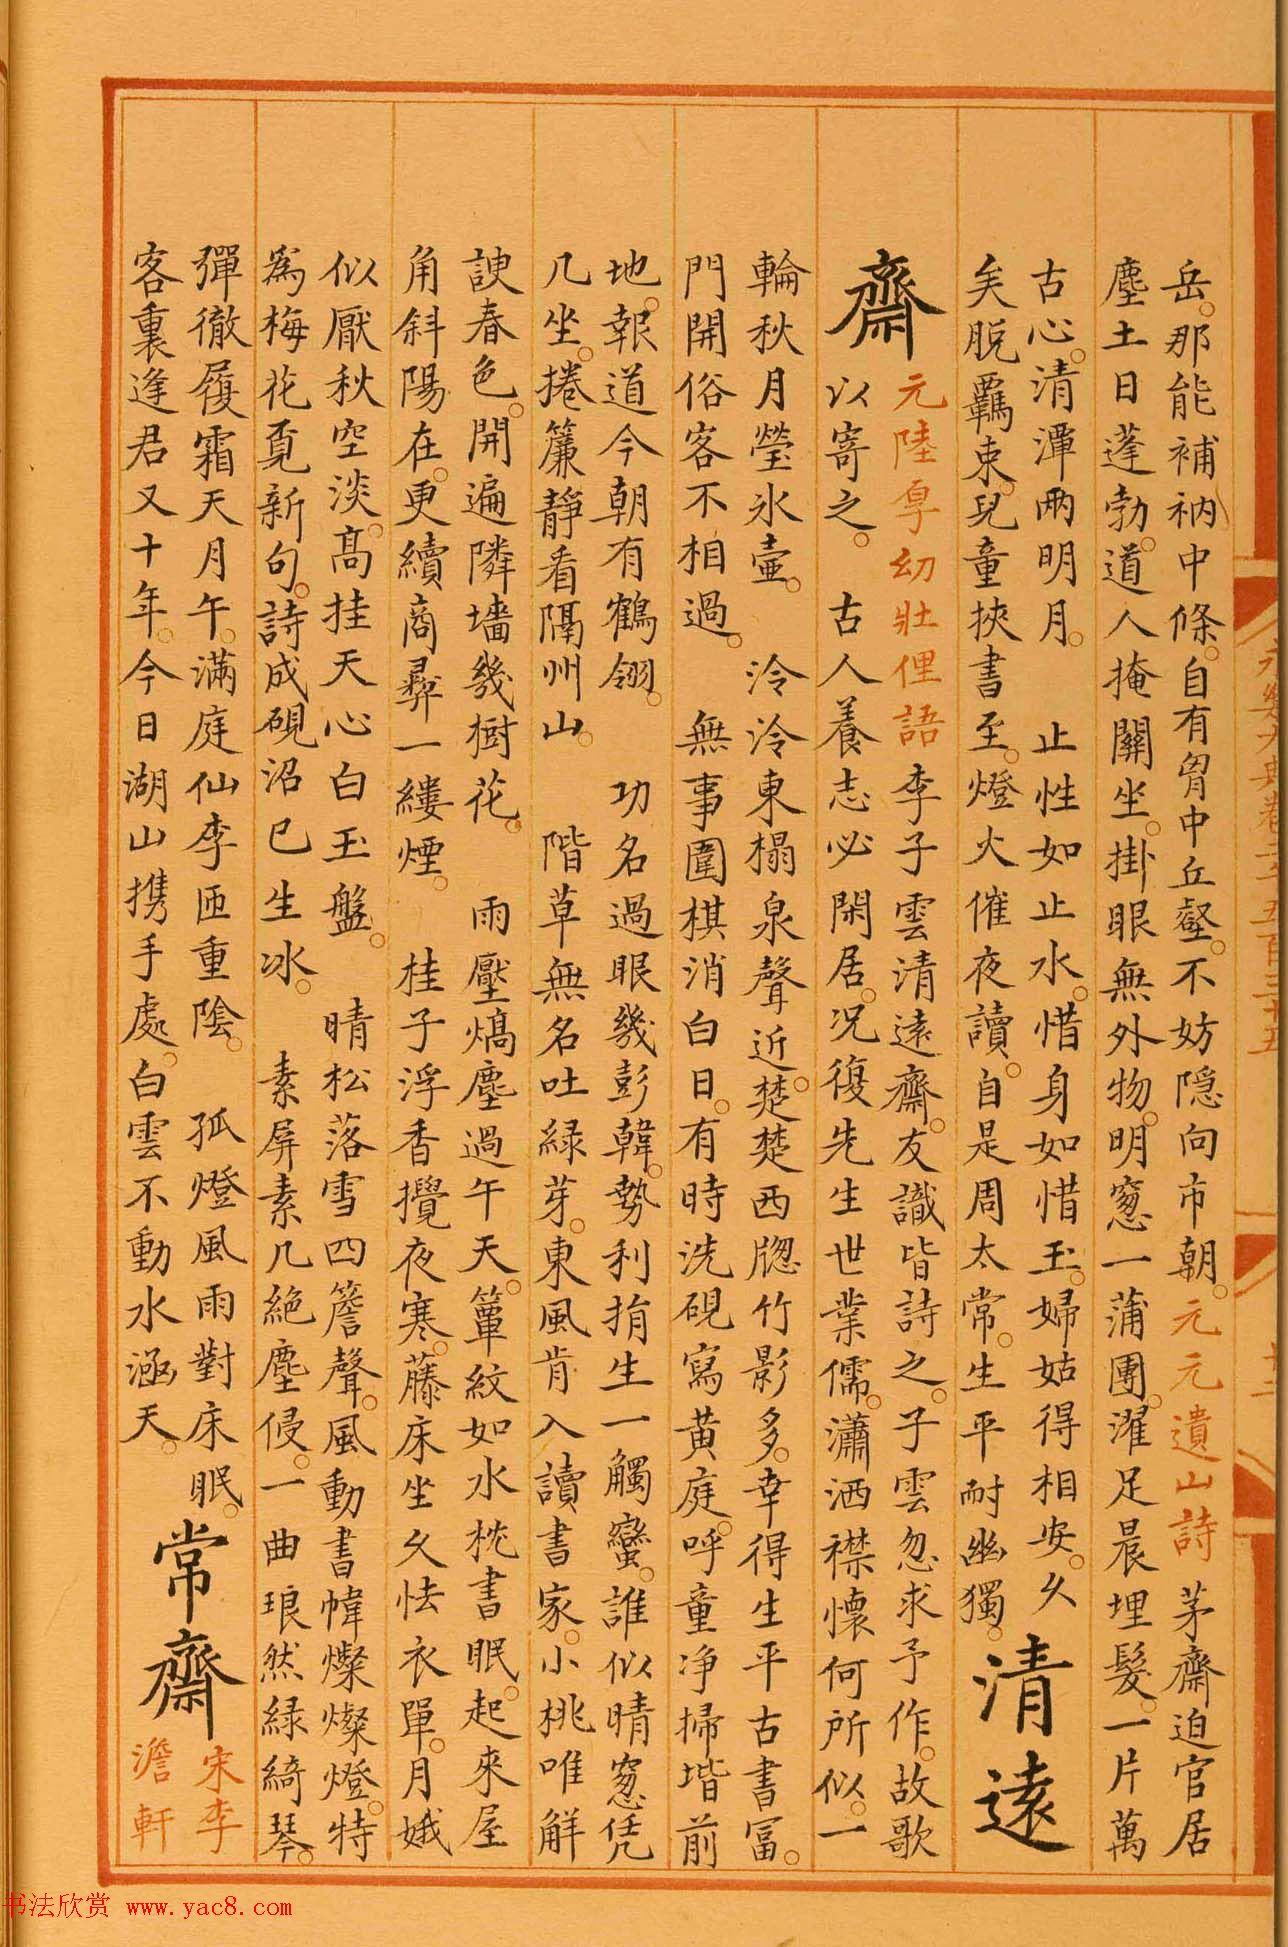 永樂大典卷二千五百三十五
岳。那能補衲中條。自有胷中丘壑。不妨隱向市朝。元元遺山詩 茅齋迫官居
塵土日蓬勃。道人掩關坐。掛眼無外物。明窻一蒲團。濯足晨埋髮。一片萬
古心。清潭兩明月。 止性如止水。惜身如惜玉。婦姑得相安。久
矣脱羈束。兒童挾書至。燈火催夜讀。自是周太常。生平耐幽獨。
清遠
齋
元陸厚幼壯俚語 李子雲清遠齋。友識皆詩之。子雲忽求予作。故歌
以寄之。 古人養志必閑居。况復先生世業儒。瀟洒襟懷何所似。一
輪秋月瑩氷壷。 泠泠東榻泉聲近。楚楚西牎竹影多。幸得生平古書富。
門開俗客不相過。 無事圍棋消白日。有時洗硯寫黄庭。呼童净掃堦前
地。報道今朝有鶴翎。 功名過眼幾彭韓。勢利捐生一觸蠻。誰似晴窻凭
几坐。捲簾静看隔州山。 階草無名吐緑芽。東風肯入讀書家。小桃唯解
諛春色。開遍隣墻幾樹花。 雨壓熇塵過午天。簟紋如水枕書眠。起來屋
角斜陽在。更續商彝一縷煙。 桂子浮香攪夜寒。藤床坐久怯衣單。月娥
似厭秋空淡。高挂天心白玉盤。 晴松落雪四簷聲。風動書幃燦燦燈。特
爲梅花覔新句。詩成硯沼已生冰。 素屏素几絶塵侵。一曲琅然緑綺琴。
彈徹履霜天月午。滿庭仙李匝重陰。 孤燈風雨對床眠。
客裏逢君又十年。今日湖山携手處。白雲不動水涵天。
常齋
宋李
澹軒
书法欣赏 www.yac8.com